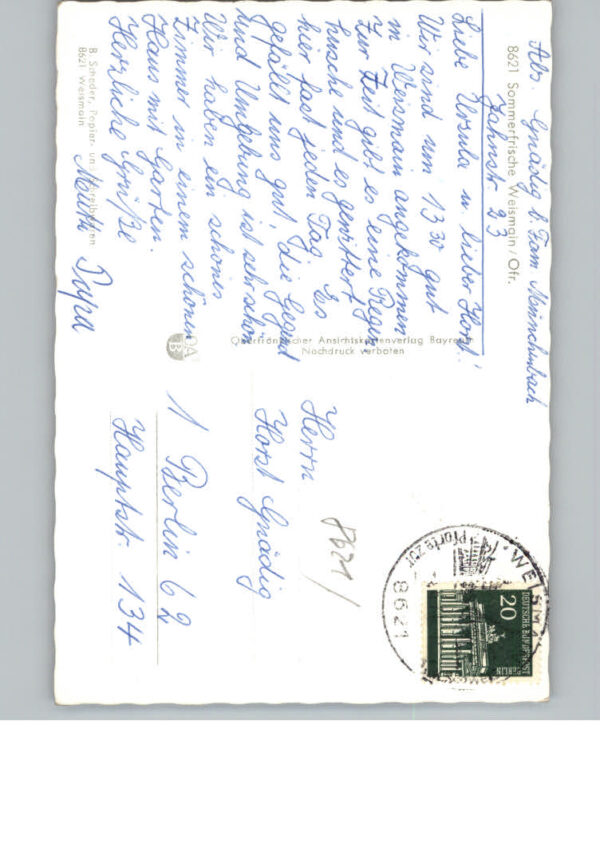 Abs. Gnädig b. Fam. Münchenbach
8621 Sommerfrische Weismain/Ofr.
Jahnstr. 23
Liebe Ursula u. lieber Horst!
Wir sind um 13 30 gut
in Weismain angekommen
Zur Zeit gibt es eine Regen
husche und es gewittert
hier fast jeden Tag. Es
gefällt uns gut, die Gegend
und Umgebung ist sehr schön
Wir haben ein schönes
Zimmer in einem schönen
Haus mit Garten.
Herzliche Grüße
Papa
B. Scheder, Papier- un
8621 Weismain
Oberfränkischer Ansichtskartenverlag Bayreuth
Nachdruck verboten
Herrn
Horst Gnädig
1 Berlin 62
Hauptstr. 134
8621
WEISMA
Pforte zur
8621
20
DEUTSCHE BUNDESPOST
BERLIN